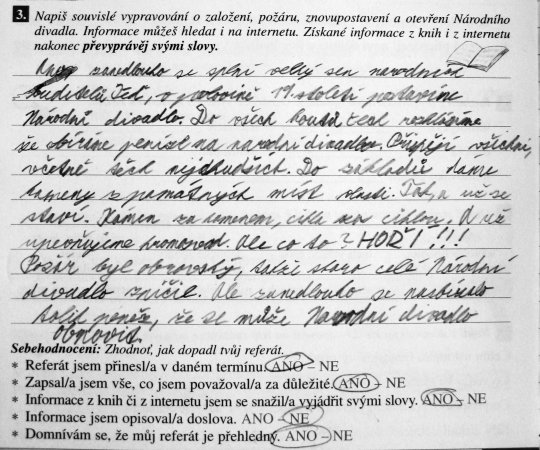 3. Napiš souvislé vypravování o založení, požáru, znovupostavení a otevření Národního
divadla. Informace můžeš hledat i na internetu. Získané informace z knih i z internetu
nakonec převyprávěj svými slovy.
zanedlouho se splní velký sen národních
buditelů. Teď, v polovině 19. století postavíme
Národní divadlo. Do všech koutů zemí rozhlásíme
že sbíráme peníze na národní divadlo. Přispějí všichni,
včetně těch nejchudších. Do základů dáme
kameny z památných míst vlasti. Tak, a už se
staví. Kámen za kamenem, cihla za cihlou, A už
upevňujeme hromosvod. Ale co to? HOŘÍ!!!
Požár byl obrovský, takže skoro celé Národní
divadlo zničil. Ale zanedlouho se nasbíralo
tolik peněz, že se může Národní divadlo
obnovit
Sebehodnocení: Zhodnoť, jak dopadl tvůj referát.
* Referát jsem přinesl/a v daném termínu. ANO – NE
* Zapsal/a jsem vše, co jsem považoval/a za důležité. ANO – NE
* Informace z knih či z internetu jsem se snažil/a vyjádřit svými slovy. ANO – NE
* Informace jsem opisoval/a doslova. ANO – NE
* Domnívám se, že můj referát je přehledný. ANO – NE